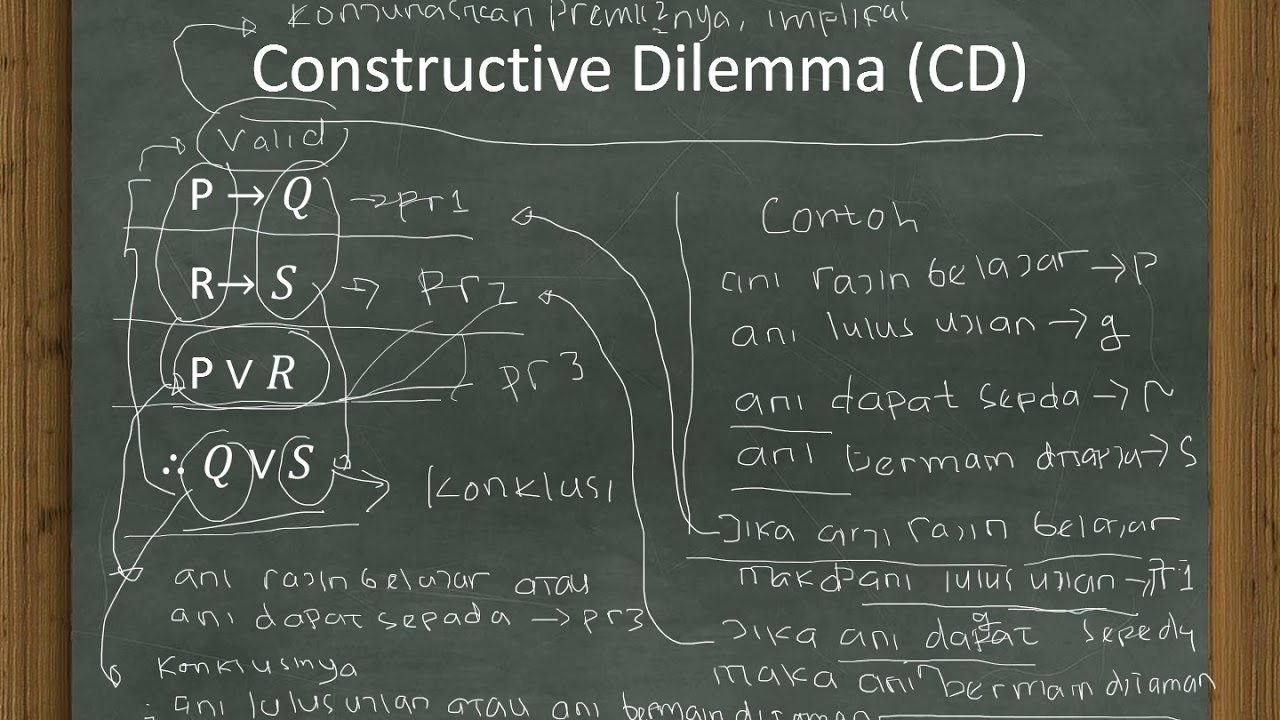 konjungsikan premisnya, implikasi
Constructive Dilemma (CD)
Valid
P → Q → pr1
R → S → pr2
P ∨ R pr3
∴ Q ∨ S → konklusi
ani rajin belajar atau
ani dapat sepada → pr3
konklusinya
∴ ani lulus ujian atau ani bermain ditaman
Contoh
ani rajin belajar → p
ani lulus ujian → q
ani dapat sepda → r
ani bermain ditaman → s
Jika ani rajin belajar
maka ani lulus ujian → pr1
Jika ani dapat sepeda
maka ani bermain ditaman